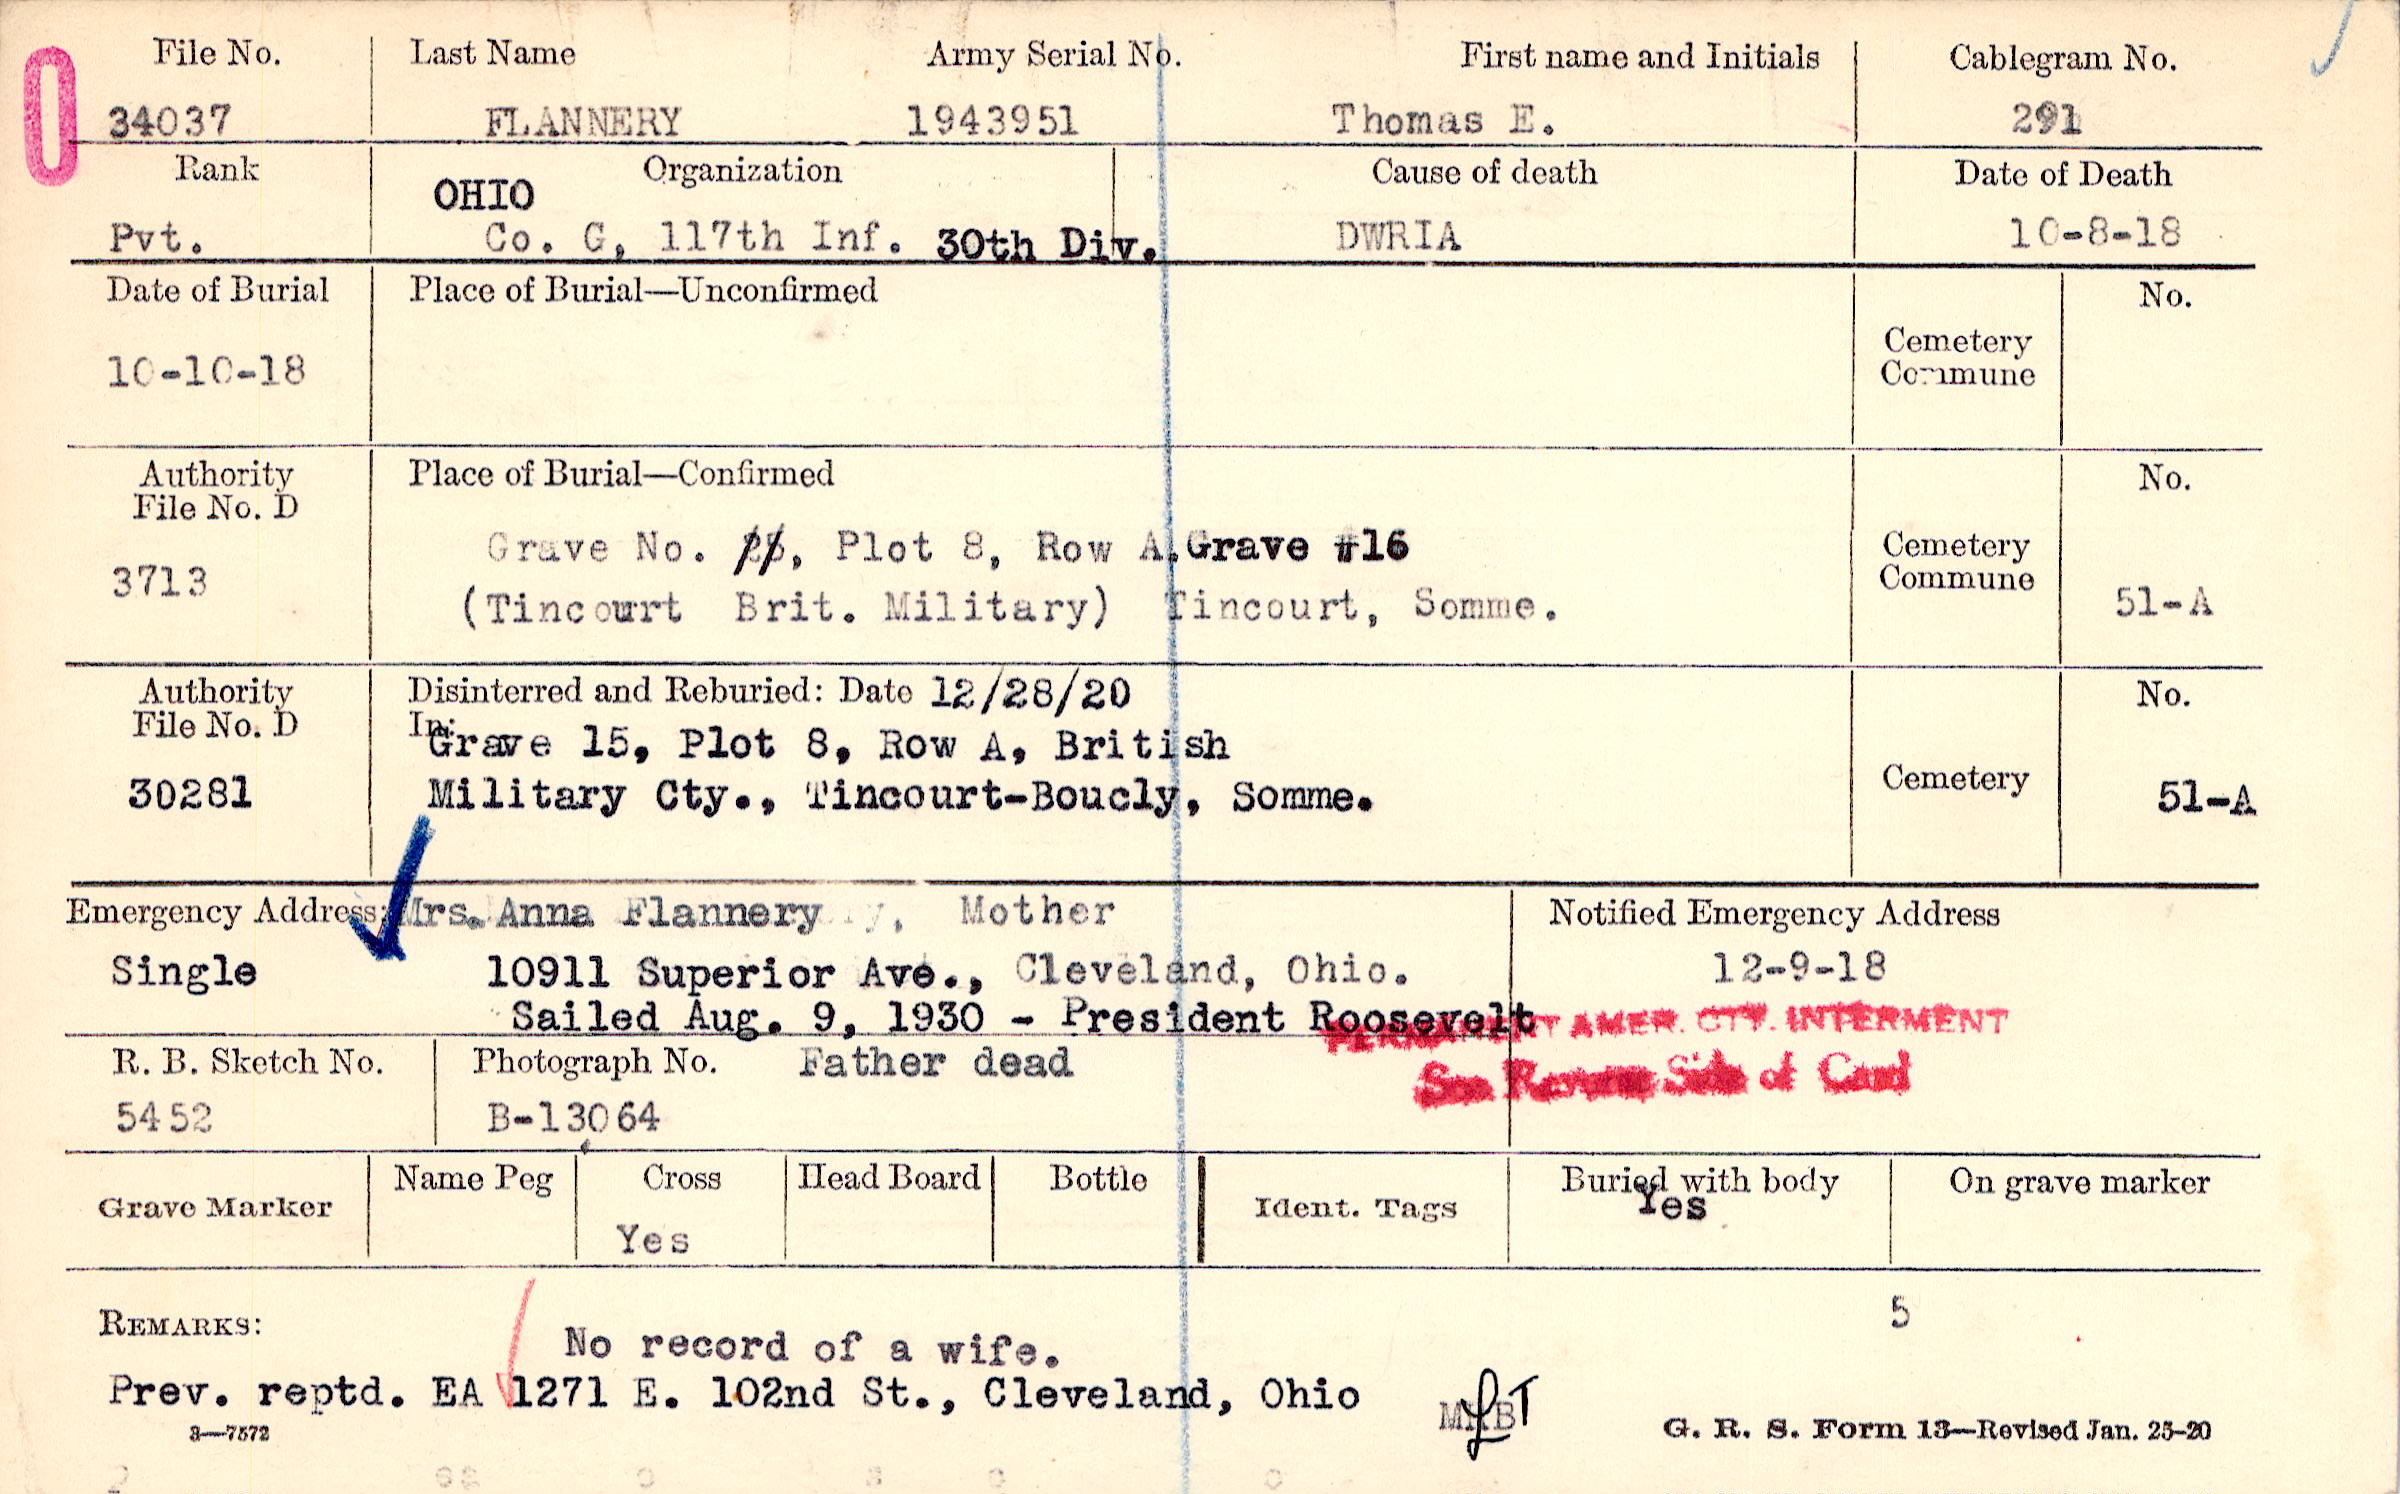 File No. Last Name Army Serial No. First name and Initials Cablegram No.
34037 FLANNERY 1943951 Thomas E. 291
Rank Organization Cause of death Date of Death
OHIO
Pvt. Co. G, 117th Inf. 30th Div. DWRIA 10-8-18
Date of Burial Place of Burial—Unconfirmed No.
10-10-18 Cemetery
Commune
Authority Place of Burial—Confirmed No.
File No. D
Grave No. , Plot 8, Row A. Grave #16 Cemetery
3713 Commune
(Tincourt Brit. Military) Tincourt, Somme. 51-A
Authority Disinterred and Reburied: Date 12/28/20 No.
File No. D In:
Grave 15, Plot 8, Row A, British
30281 Military Cty., Tincourt-Boucly, Somme. Cemetery 51-A
Emergency Address: Mrs. Anna Flannery y, Mother Notified Emergency Address
Single 10911 Superior Ave., Cleveland, Ohio. 12-9-18
Sailed Aug. 9, 1930 - President Roosevelt
PERMANENT AMER. CTY. INTERMENT
R. B. Sketch No. Photograph No. Father dead
See Reverse Side of Card
5452 B-13064
Grave Marker Name Peg Cross Head Board Bottle Ident. Tags Buried with body On grave marker
Yes Yes
5
REMARKS:
No record of a wife.
Prev. reptd. EA 1271 E. 102nd St., Cleveland, Ohio
3—7572 G. R. S. Form 13—Revised Jan. 25-20